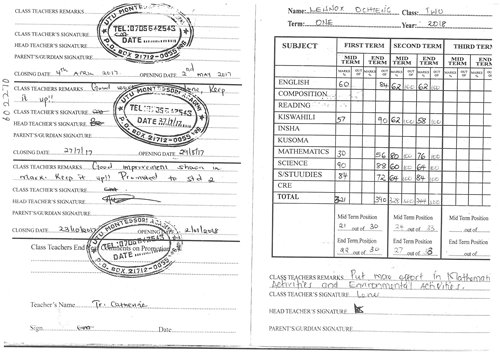 CLASS TEACHERS REMARKS
CLASS TEACHER'S SIGNATURE
HEAD TEACHER'S SIGNATURE
PARENT'S/GURDIAN SIGNATURE
CLOSING DATE 4th APRIL 2017. OPENING DATE 2nd MAY 2017
UTU MONTESSORI
TEL: 0706642543
DATE
P.O. BOX 21712-00
CLASS TEACHERS REMARKS Good Keep
it up!!
CLASS TEACHER'S SIGNATURE
HEAD TEACHER'S SIGNATURE
PARENT'S/GURDIAN SIGNATURE
CLOSING DATE 27/7/17 OPENING DATE
UTU MONTESSORI
TEL: 0706642543
DATE 27/7/17
P.O. BOX 21712-00
CLASS TEACHERS REMARKS Good improvement shown in
Keep it up!! Promoted to std 2
CLASS TEACHER'S SIGNATURE
HEAD TEACHER'S SIGNATURE
PARENT'S/GURDIAN SIGNATURE
CLOSING DATE OPENING 2/01/2018
UTU MONTESSORI
TEL: 0706642543
DATE
P.O. BOX 21712-00
Class Teachers End Comments on Promotion
Teacher's Name Tr. Catherine
Sign Date
6022710
Name: LENNOX Class: TWO
Term: ONE Year: 2018
SUBJECT FIRST TERM SECOND TERM THIRD TERM
MID TERM END TERM MID TERM END TERM MID TERM
MARKS % OUT OF MARKS % OUT OF MARKS % OUT OF MARKS % OUT OF MARKS % OUT OF
ENGLISH 60 84 62 100 62 100
COMPOSITION
READING
KISWAHILI 57 90 62 100 58 100
INSHA
KUSOMA
MATHEMATICS 30 56 80 100 76 100
SCIENCE 90 88 60 100 64 100
S/STUUDIES 84 72 64 100 84 100
CRE
TOTAL 321 390 328 344
Mid Term Position Mid Term Position Mid Term Position
21 out of 30 out of out of
End Term Position End Term Position End Term Position
22 out of 30 27 out of out of
CLASS TEACHERS REMARKS Put more effort in Mathematical
Activities and Environmental Activities.
CLASS TEACHER'S SIGNATURE
HEAD TEACHER'S SIGNATURE
PARENT'S/GURDIAN SIGNATURE